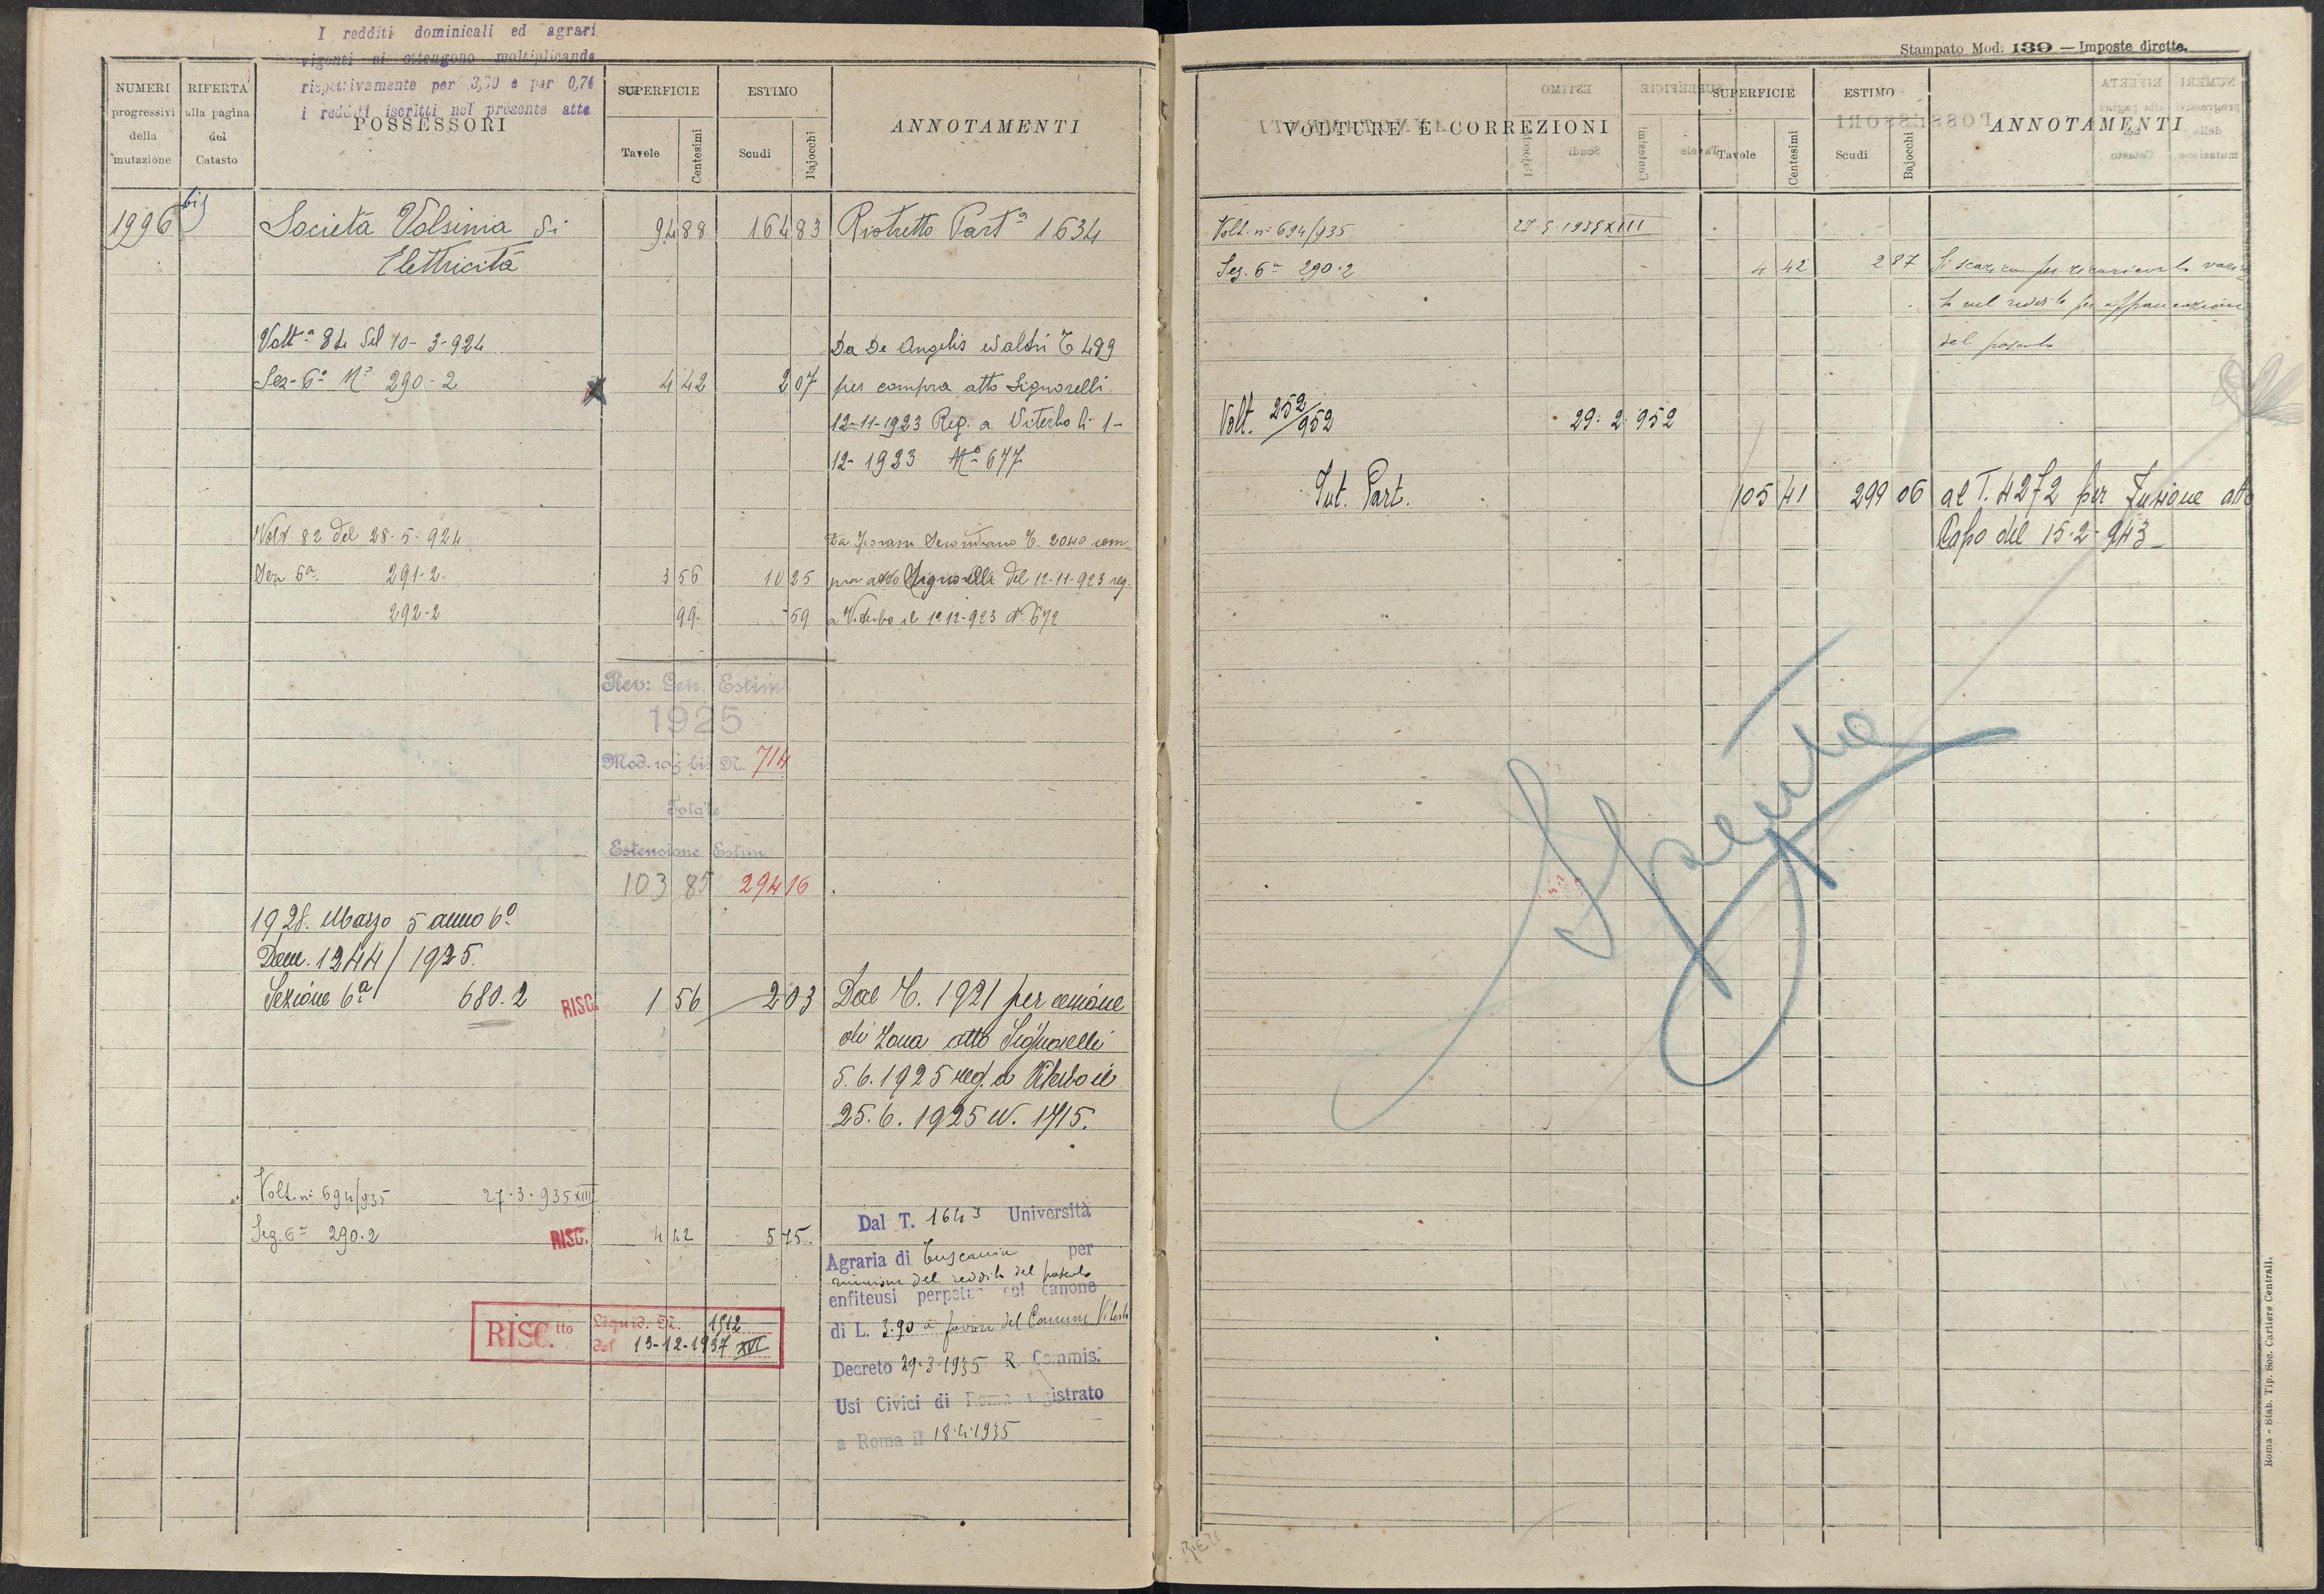 I redditi dominicali ed agrari
vigenti si ottengono moltiplicando
rispettivamente per 3,50 e per 0,76
i redditi iscritti nel presente atto
NUMERI progressivi della mutazione
RIFERTA alla pagina del Catasto
POSSESSORI
SUPERFICIE
Tavole Centesimi
ESTIMO
Scudi Bajocchi
ANNOTAMENTI
1996 bis Società Volsinia di 94 88 164 83 Ristretto Part.ª 1634
Elettricità
Volt.ª 84 del 10-3-924 Da De Angelis ed altri T 489
Sez-6ª Nº 290-2 4 42 2 07 per compra atto Signorelli
12-11-1923 Reg. a Viterbo li 1-
12-1923 Nº 677
Volt 82 del 28-5-924 T. 2040 com-
Sez 6ª 291-2 3 56 10 25 pra atto Signorelli del 12-11-923 reg.
292-2 99 - 59 a Viterbo il 1º 12-923 N. 672
Rev: Gen. Estimi
1925
Mod. 103 bis N. 714
Totale
Estensione Estim
103 85 294 16
1928. Marzo 5 anno 6º
Dom. 1244/1925.
Sezione 6ª 680.2 RISC. 1 56 2 03 Dal T. 1921 per cessione
di zona atto Signorelli
5.6.1925 reg. a Viterbo il
25.6.1925 N. 1715.
Volt. nº 694/935 27.3.935 XIII
Sez. 6ª 290.2 RISC. 4 42 5 75
Dal T. 1643 Università
Agraria di Tuscania per
del reddito del pascolo
enfiteusi perpetua col canone
di L. 3.90 a favore del Comune Viterbo
Decreto 29-3-1935 R. Commis.
Usi Civici di Roma registrato
a Roma il 18.4.1935
RISC.tto Liquid. N. 1912
del 13-12-1937 XVI
Stampato Mod. 139 — Imposte dirette.
VOLTURE E CORREZIONI
SUPERFICIE
Tavole Centesimi
ESTIMO
Scudi Bajocchi
ANNOTAMENTI
Volt. nº 694/935 27.3.1935 XIII
Sez. 6ª 290.2 4 42 2 87 Si scarica per
to nel reddito per affrancazione
del pascolo
Volt. 252/952 29.2.952
Int. Part. 105 41 299 06 al T. 4272 per fusione atto
Capo del 15-2-943
Spenta
Roma - Stab. Tip. Soc. Cartiere Centrali.